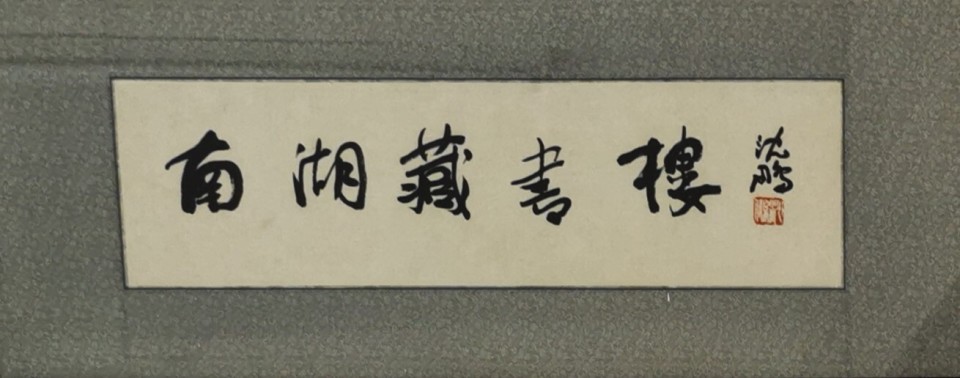 南湖藏書樓
沈鵬